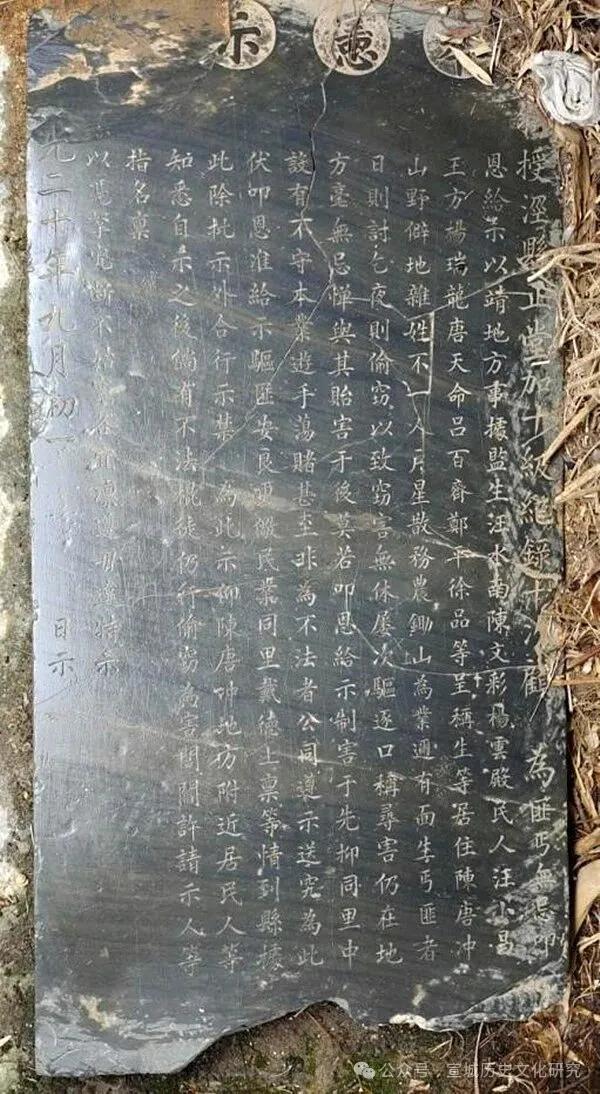 憲示
授涇縣正堂加十級紀錄十次顧 為匪丐無忌叩
恩給示以靖地方事據監生汪水南陳文彩楊雲殿民人汪小昌
王方楊瑞龍唐天命呂百齊鄭平徐品等呈稱生等居住陳唐冲
山野僻地雜姓不一人戶星散務農鋤山為業邇有面生丐匪者
日則討乞夜則偷窃以致窃害無休屡次驅逐口稱尋害仍在地
方毫無忌憚與其貽害于後莫若叩恩給示制害于先抑同里中
設有不守本業遊手蕩賭甚至非為不法者公同遵示送究為此
伏叩恩准給示驅匪安良更儆民業同里戴德上稟等情到縣據
此除批示外合行示禁為此示仰陳唐冲地方附近居民人等
知悉自示之後倘有不法棍徒仍行偷窃為害閭閻許請示人等
指名稟
以憑拏究斷不姑寬各宜凛遵毋違特示
光二十年九月初一 日示
公众号 · 宣城历史文化研究